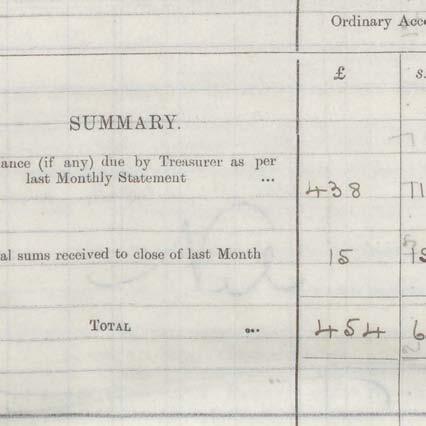 Ordinary Acc
£ s.
SUMMARY.
ance (if any) due by Treasurer as per
last Monthly Statement ... 438 11
al sums received to close of last Month 15 15
TOTAL ... 454 6